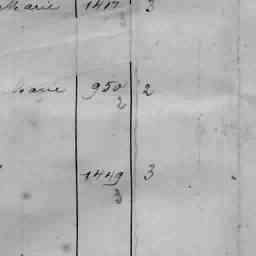 Marie 1417 3
3
950 2
2
1449 3
3